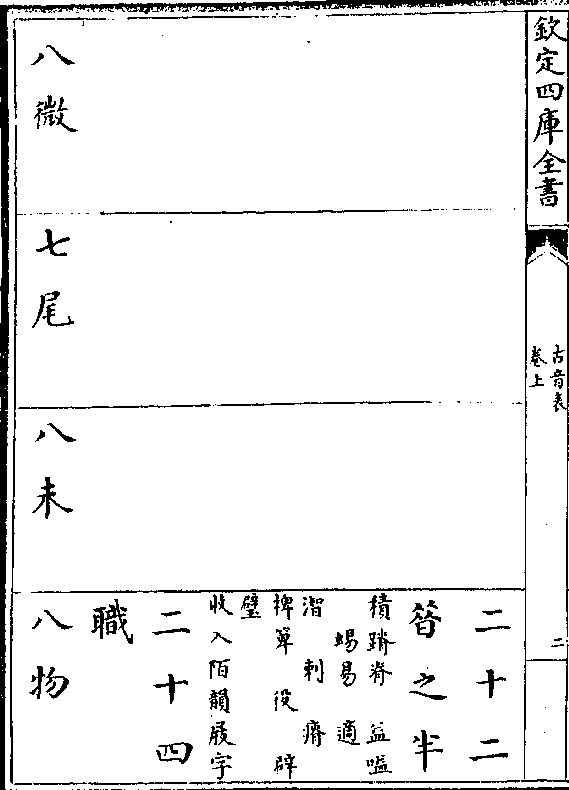 欽定四庫全書
古音表
卷上
二
二十二
昔之半
積蹐脊益嗌
蜴易適
㴸刺瘠
捭箄役辟
躄
收入陌韻屐字
二十四
職
八微
七尾
八未
八物